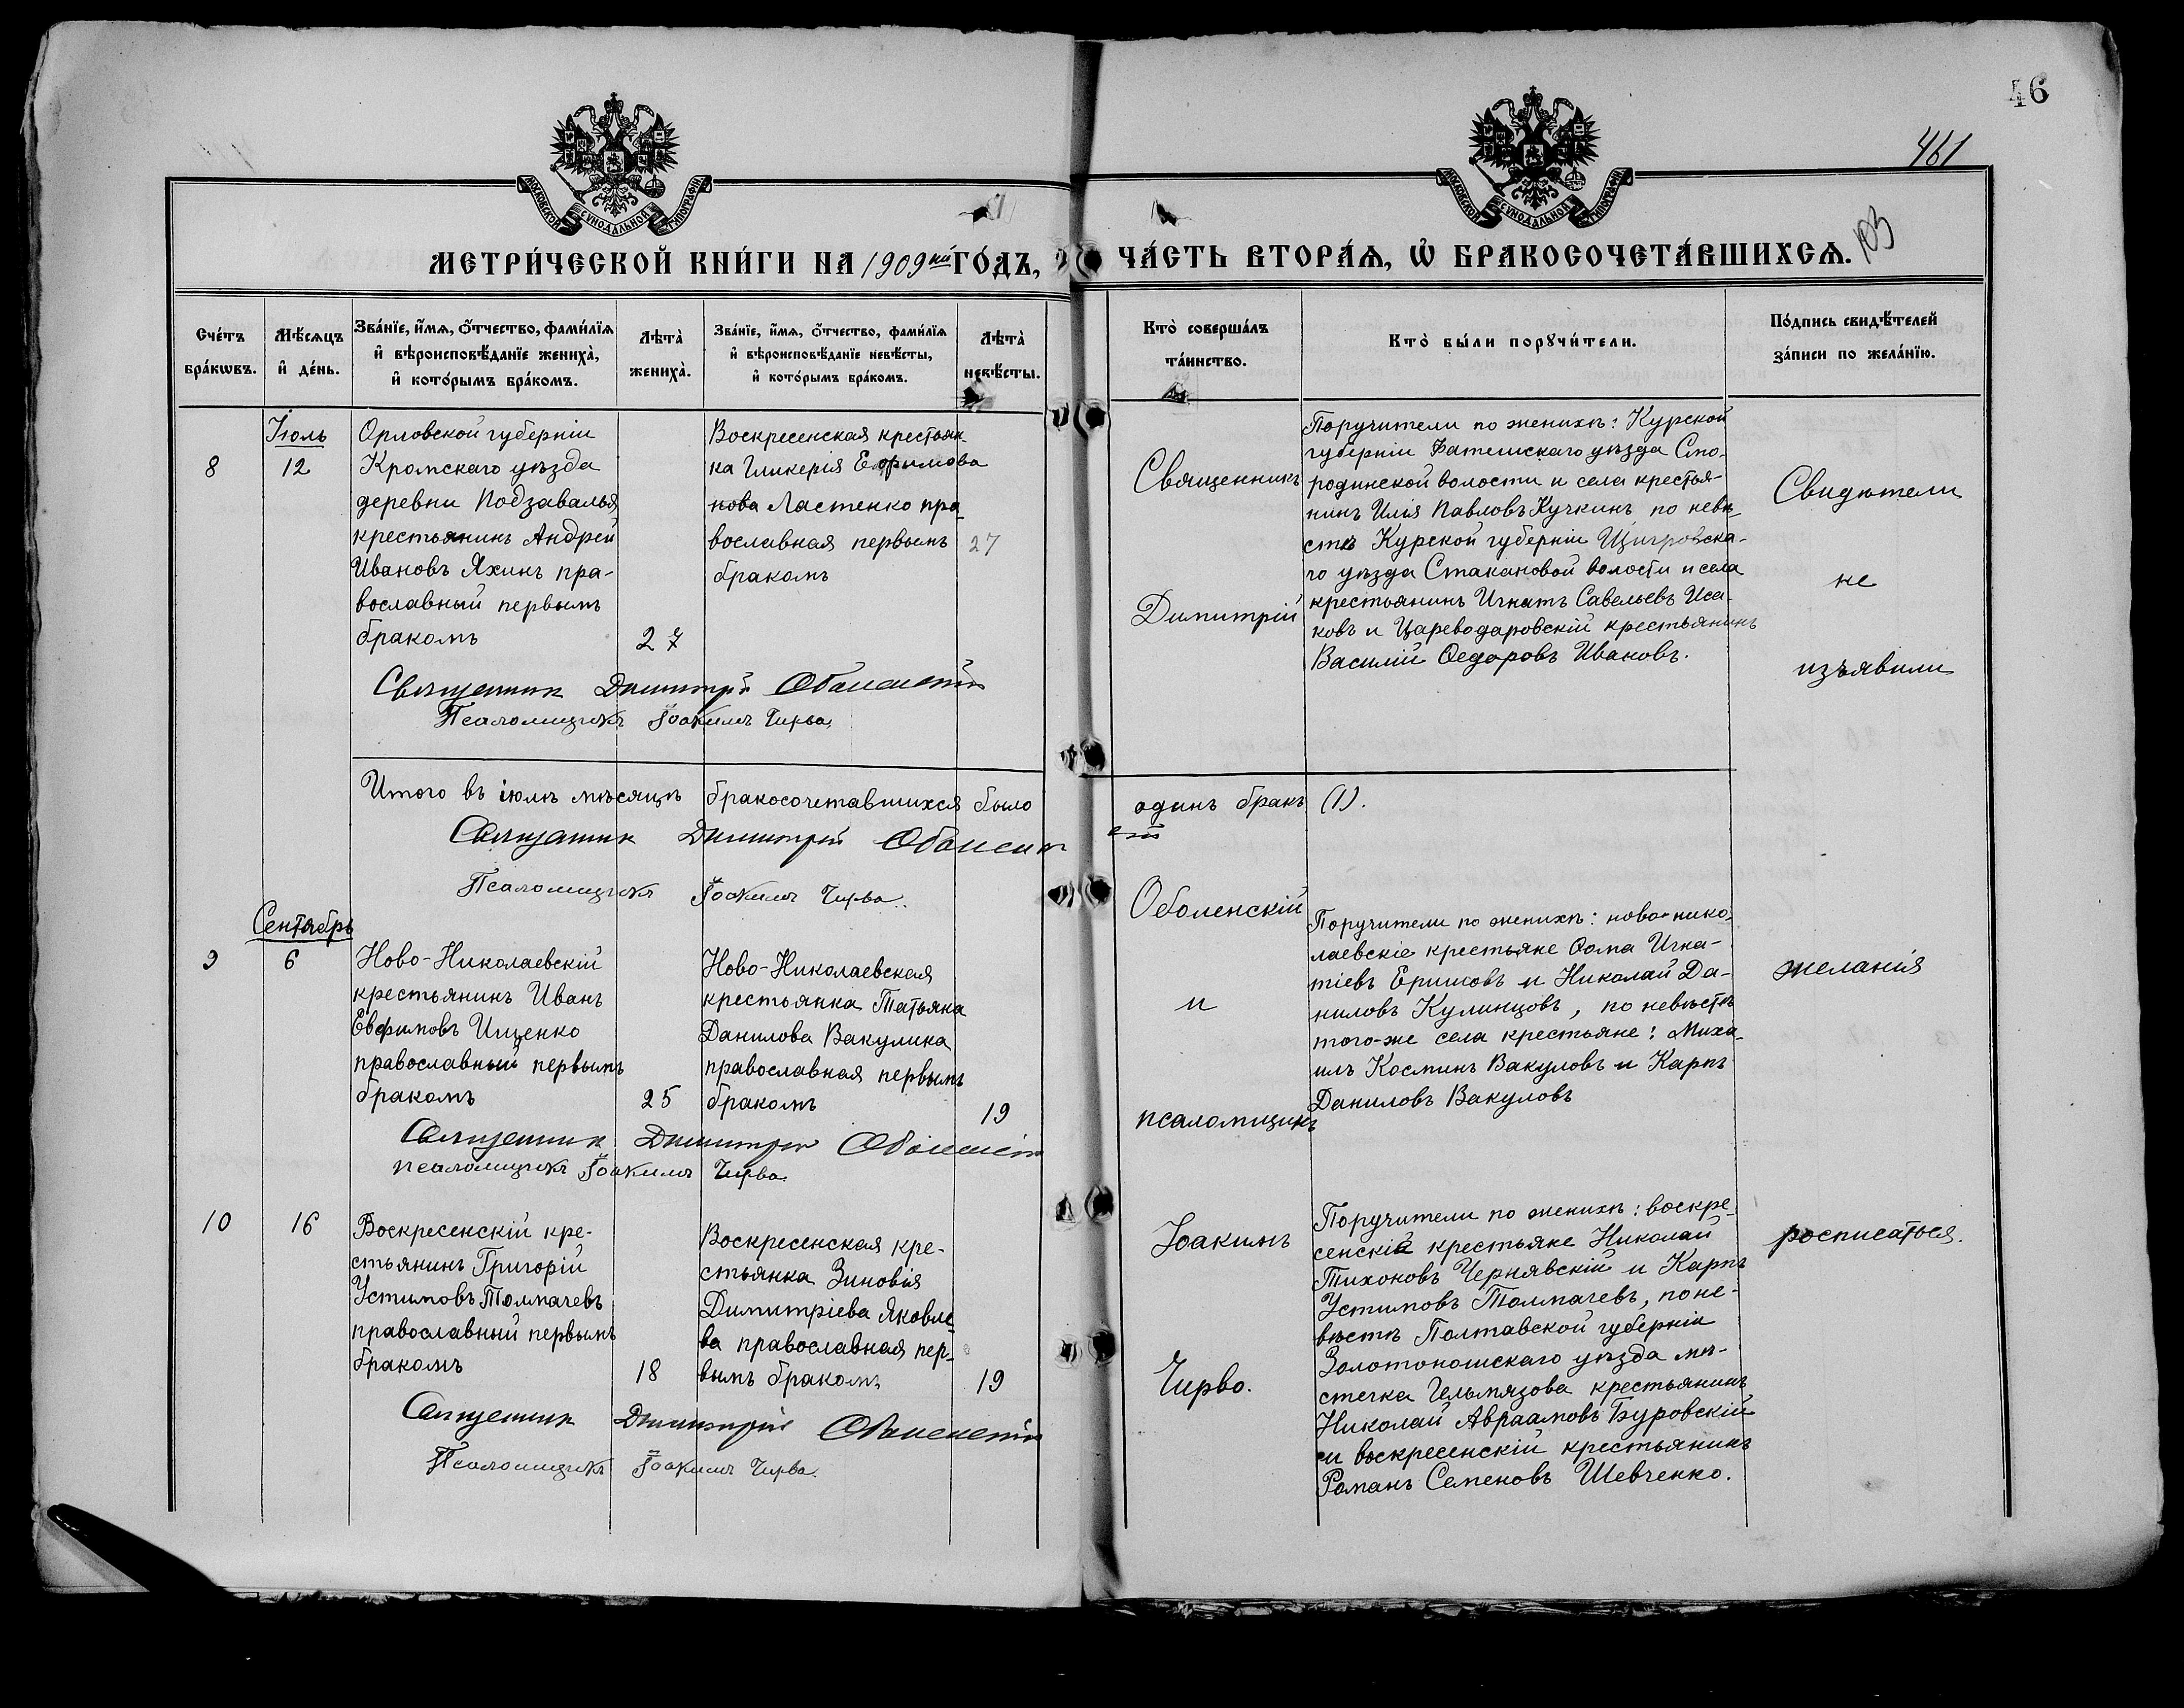 46
461
103
МОСКОВСКОЙ СѴНОДАЛЬНОЙ ТИПОГРАФІИ
МОСКОВСКОЙ СѴНОДАЛЬНОЙ ТИПОГРАФІИ
МЕТРИ́ЧЕСКОЙ КНИ́ГИ НА 1909й ГО́ДЪ,
ЧА́СТЬ ВТОРА́Ѧ, Ѡ҆ БРАКОСОЧЕТА́ВШИХСѦ.
Сче́тъ
бра́кѡвъ.
Мѣ́сѧцъ
и҆ де́нь.
Зва́нїе, и҆́мѧ, ѻ҆́тчество, фами́лїѧ
и҆ вѣроисповѣ́данїе жениха̀,
и҆ кото́рымъ бра́комъ.
Лѣта̀
жениха̀.
Зва́нїе, и҆́мѧ, ѻ҆́тчество, фами́лїѧ
и҆ вѣроисповѣ́данїе невѣ́сты,
и҆ кото́рымъ бра́комъ.
Лѣта̀
невѣ́сты.
Кто̀ соверша́лъ
та́инство.
Кто̀ бы́ли порꙋчи́тели.
По́дпись свидѣ́телей
за́писи по жела́нїю.
8
Іюль
12
Орловской губерніи
Кромскаго уѣзда
деревни Подзавалья
крестьянинъ Андрей
Ивановъ Яхинъ пра-
вославный первымъ
бракомъ
27
Воскресенская крестьян-
ка Гликерія Ефимова
нова Ластенко пра-
вославная первымъ
бракомъ
27
Священникъ Димитрій Оболенскій
Псаломщикъ Іоакимъ Чирва.
Священникъ
Димитрій
Поручители по женихѣ: Курской
губерніи Фатешскаго уѣзда Смо-
родинской волости и села крестья-
нинъ Илія Павловъ Кучкинъ по невѣ-
стѣ Курской губерніи Щигровска-
го уѣзда Стакановой волости и села
крестьянинъ Игнатъ Савельевъ Иса-
ковъ и Цареводаровскій крестьянинъ
Василій Ѳедоровъ Ивановъ.
Свидѣтели
не
изъявили
Итого въ іюлѣ мѣсяцѣ бракосочетавшихся было одинъ бракъ (1).
Священникъ Димитрій Оболенскій
Псаломщикъ Іоакимъ Чирва.
9
Сентябрь
6
Ново-Николаевскій
крестьянинъ Иванъ
Евфимовъ Ищенко
православный первымъ
бракомъ
25
Ново-Николаевская
крестьянка Татьяна
Данилова Вакулина
православная первымъ
бракомъ
19
Священникъ Димитрій Оболенскій
псаломщикъ Іоакимъ Чирва.
Оболенскій
и
псаломщикъ
Поручители по женихѣ: ново-нико-
лаевскіе крестьяне Ѳома Игна-
тіевъ Ершовъ и Николай Да-
ниловъ Кулинцовъ, по невѣстѣ
того-же села крестьяне: Миха-
илъ Косминъ Вакуловъ и Карпъ
Даниловъ Вакуловъ
желанія
10
16
Воскресенскій кре-
стьянинъ Григорій
Устимовъ Толмачевъ
православный первымъ
бракомъ
18
Воскресенская кре-
стьянка Зиновія
Димитріева Яковле-
ва православная пер-
вымъ бракомъ
19
Священникъ Димитрій Оболенскій
Псаломщикъ Іоакимъ Чирва.
Іоакимъ
Чирво.
Поручители по женихѣ: воскре-
сенскіе крестьяне Николай
Тихоновъ Чернявскій и Карпъ
Устимовъ Толмачевъ, по не-
вѣстѣ Полтавской губерніи
Золотоношскаго уѣзда мѣ-
стечка Гельмязова крестьянинъ
Николай Авраамовъ Буровскій
и воскресенскій крестьянинъ
Романъ Семеновъ Шевченко.
росписаться.